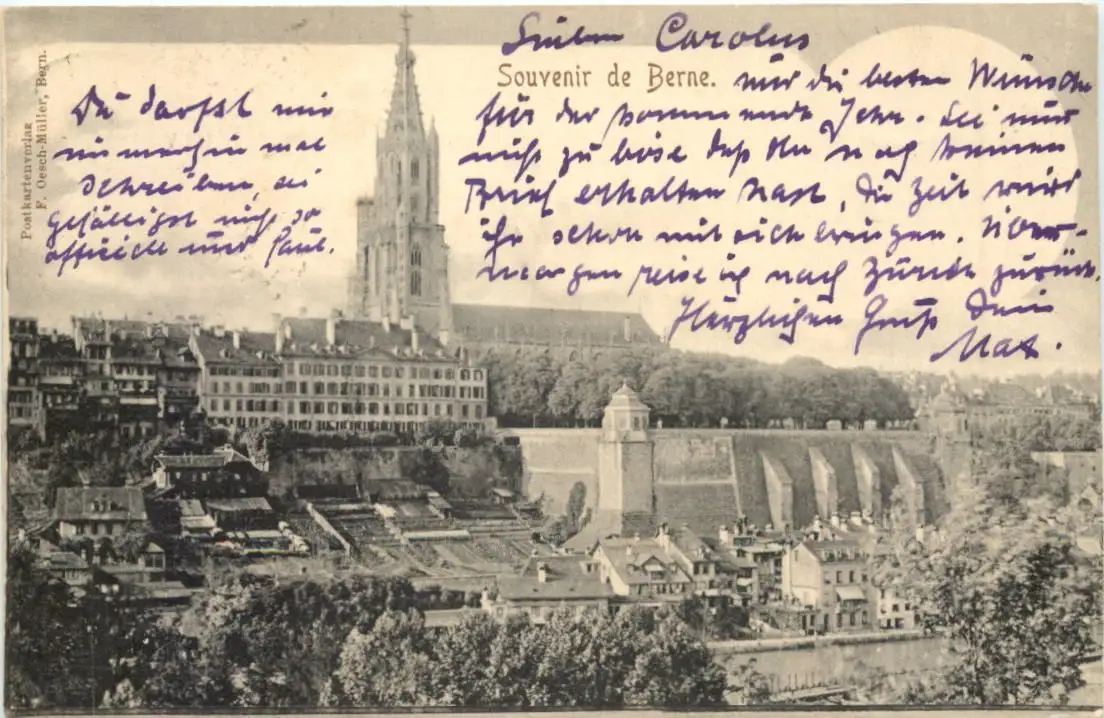 Lieber Carolus
Souvenir de Berne.
nur die besten Wünsche
für das kommende Jahr. Sei nur
nicht zu böse daß du noch keinen
Brief erhalten hast, die Zeit wird
ihn schon mit sich bringen. Über-
morgen reise ich nach Zürich zurück.
Herzlichen Gruß Dein
Max.
Du darfst mir
immerhin mal
schreiben, sei
gefälligst nicht so
officiell und faul.
Postkartenverlag
F. Oesch-Müller, Bern.